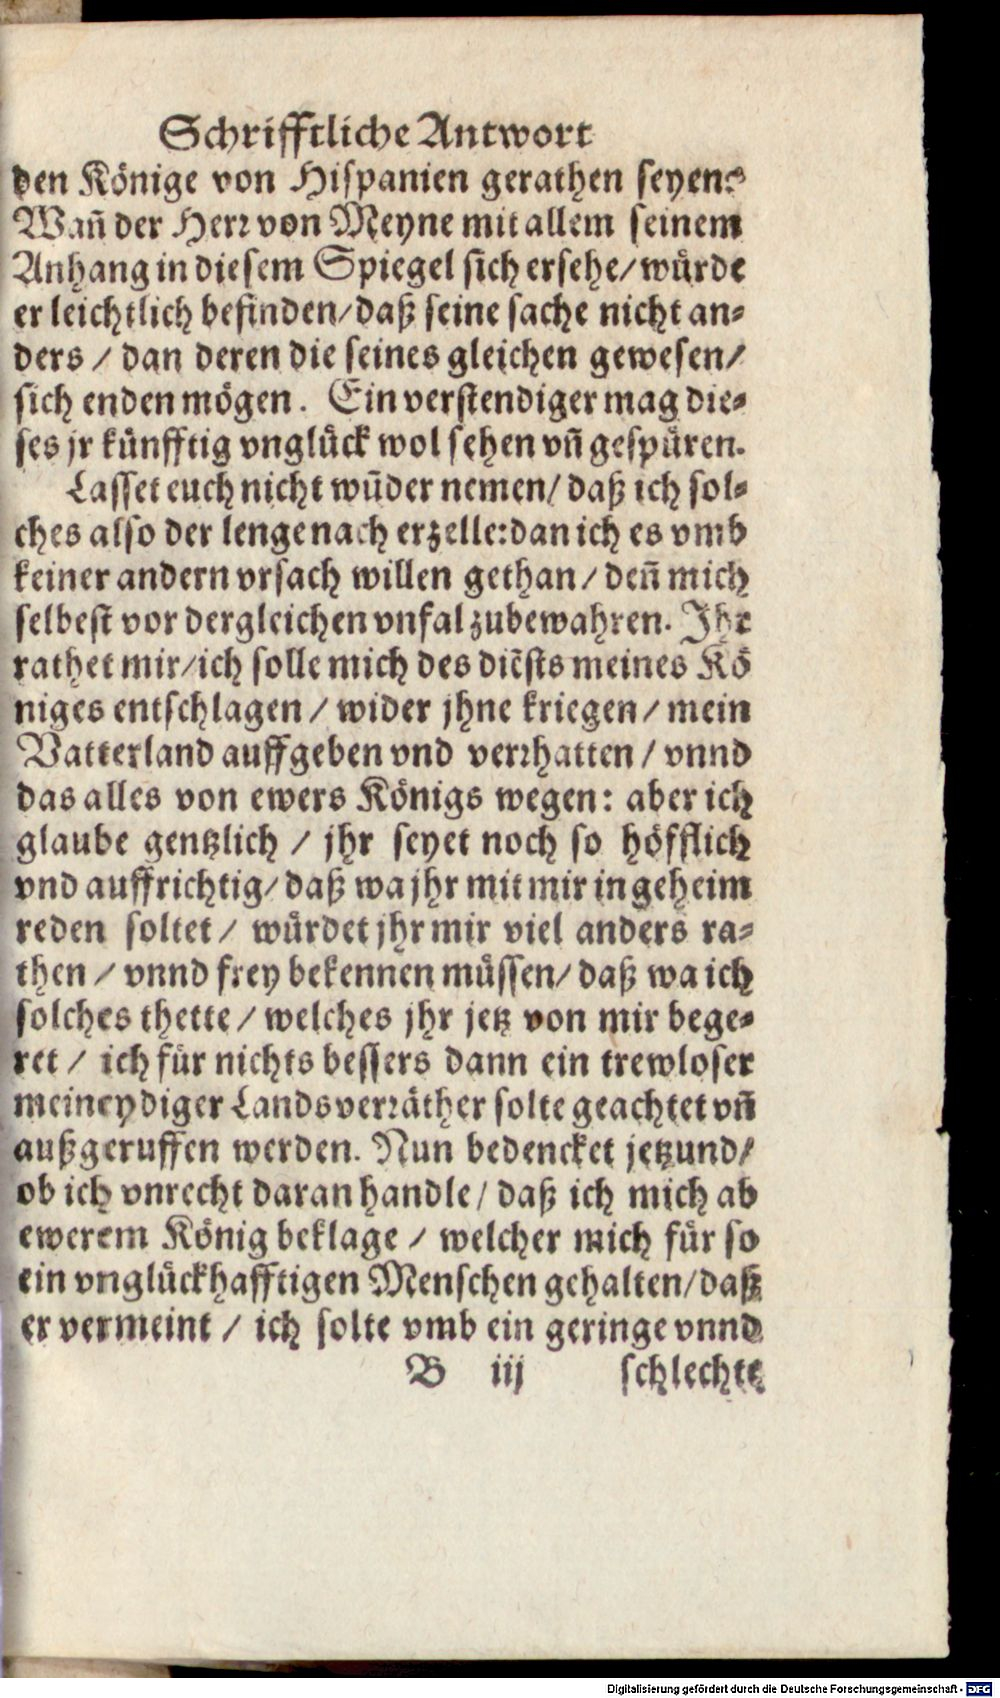 Schrifftliche Antwort
den Könige von Hispanien gerathen seyen?
Wañ der Herr von Meyne mit allem seinem
Anhang in diesem Spiegel sich ersehe/ würde
er leichtlich befinden/ daß seine sache nicht an-
ders / dan deren die seines gleichen gewesen/
sich enden mögen. Ein verstendiger mag die-
ses jr künfftig vnglück wol sehen vñ gespüren.
Lasset euch nicht wūder nemen/ daß ich sol-
ches also der lenge nach erzelle: dan ich es vmb
keiner andern vrsach willen gethan / deñ mich
selbest vor dergleichen vnfal zubewahren. Ihr
rathet mir/ ich solle mich des diēsts meines Kö
niges entschlagen / wider jhne kriegen / mein
Vatterland auffgeben vnd verrhatten / vnnd
das alles von ewers Königs wegen: aber ich
glaube gentzlich / jhr seyet noch so höfflich
vnd auffrichtig/ daß wa jhr mit mir in geheim
reden soltet / würdet jhr mir viel anders ra-
then / vnnd frey bekennen müssen/ daß wa ich
solches thette / welches jhr jetz von mir bege-
ret / ich für nichts bessers dann ein trewloser
meineydiger Landsverräther solte geachtet vñ
außgeruffen werden. Nun bedencket jetzund/
ob ich vnrecht daran handle / daß ich mich ab
ewerem König beklage / welcher mich für so
ein vnglückhafftigen Menschen gehalten/ daß
er vermeint / ich solte vmb ein geringe vnnd
B iij schlechte
Digitalisierung gefördert durch die Deutsche Forschungsgemeinschaft - DFG